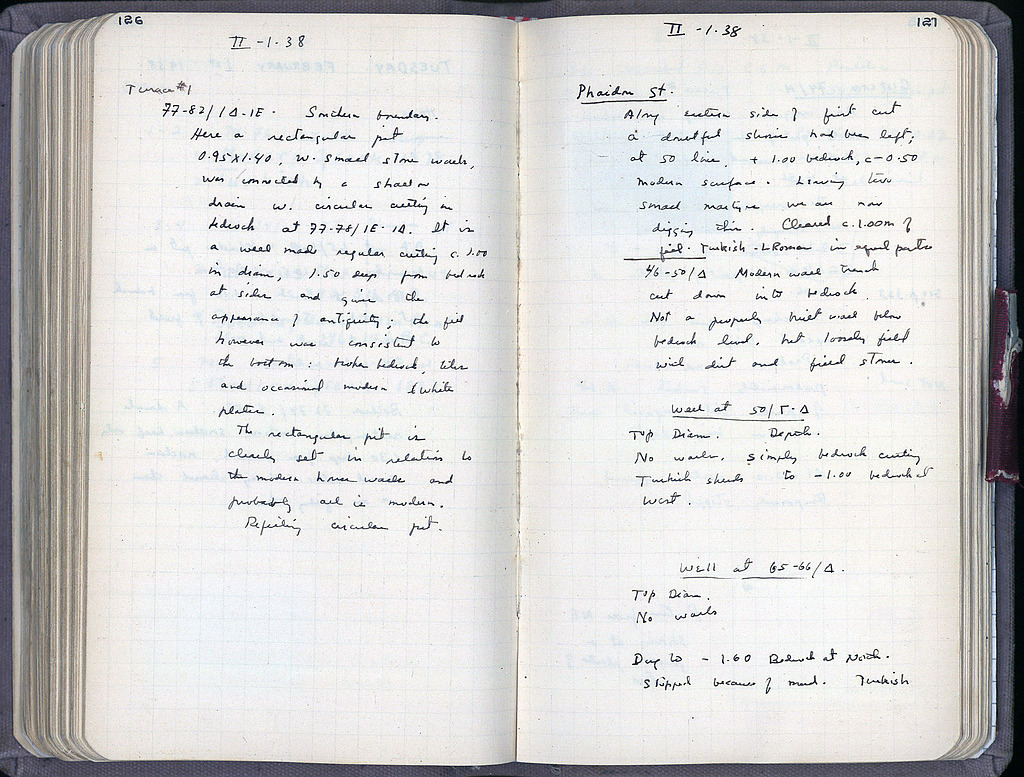 126
II -1·38
Terrace #1
77-82/ΙΔ-ΙΕ. Southern boundary.
Here a rectangular pit
0.95x1.40, w. small stone walls,
was connected by a shallow
drain w. circular cutting in
bedrock at 77-78/ΙΕ·ΙΔ. It is
a well made regular cutting c. 1.00
in diam, 1.50 deep from bedrock
at sides and gives the
appearance of antiquity; the fill
however was consistent to
the bottom: broken bedrock, tiles
and occasional modern white
plaster.
The rectangular pit is
clearly set in relation to
the modern house walls and
probably all is modern.
Refilling circular pit.
127
II -1·38
Phaidon St.
Along eastern side of first cut
a doubtful shoring had been left;
at 50 line, + 1.00 bedrock, c-0.50
modern surface. Leaving two
small we are now
digging this. Cleared c. 1.00m of
fill. Turkish - L Roman in equal parts
46-50/Δ Modern wall trench
cut down into bedrock.
Not a properly built wall below
bedrock level, but loosely filled
with dirt and field stones.
Well at 50/Γ·Δ
Top Diam. Depth.
No walls, simply bedrock cutting
Turkish sherds to -1.00 bedrock at
West.
Well at 65-66/Δ.
Top Diam.
No walls
Dug to - 1.60 Bedrock at North.
Stopped because of mud. Turkish